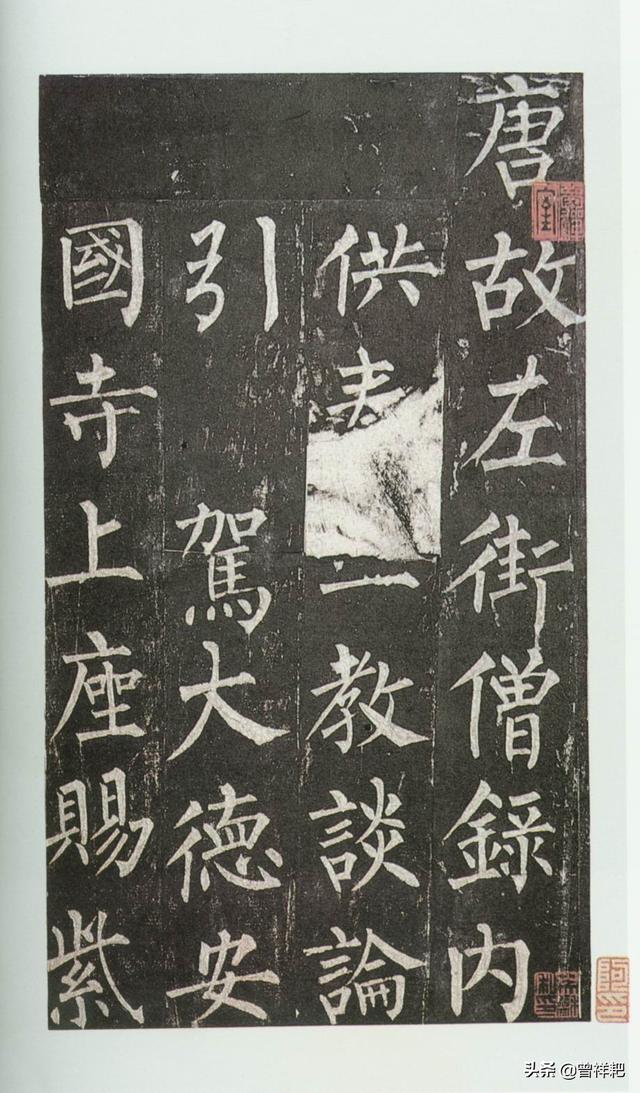 唐故左街僧錄内
供教談論
引駕大德安
國寺上座賜紫
头条 @曾祥耙